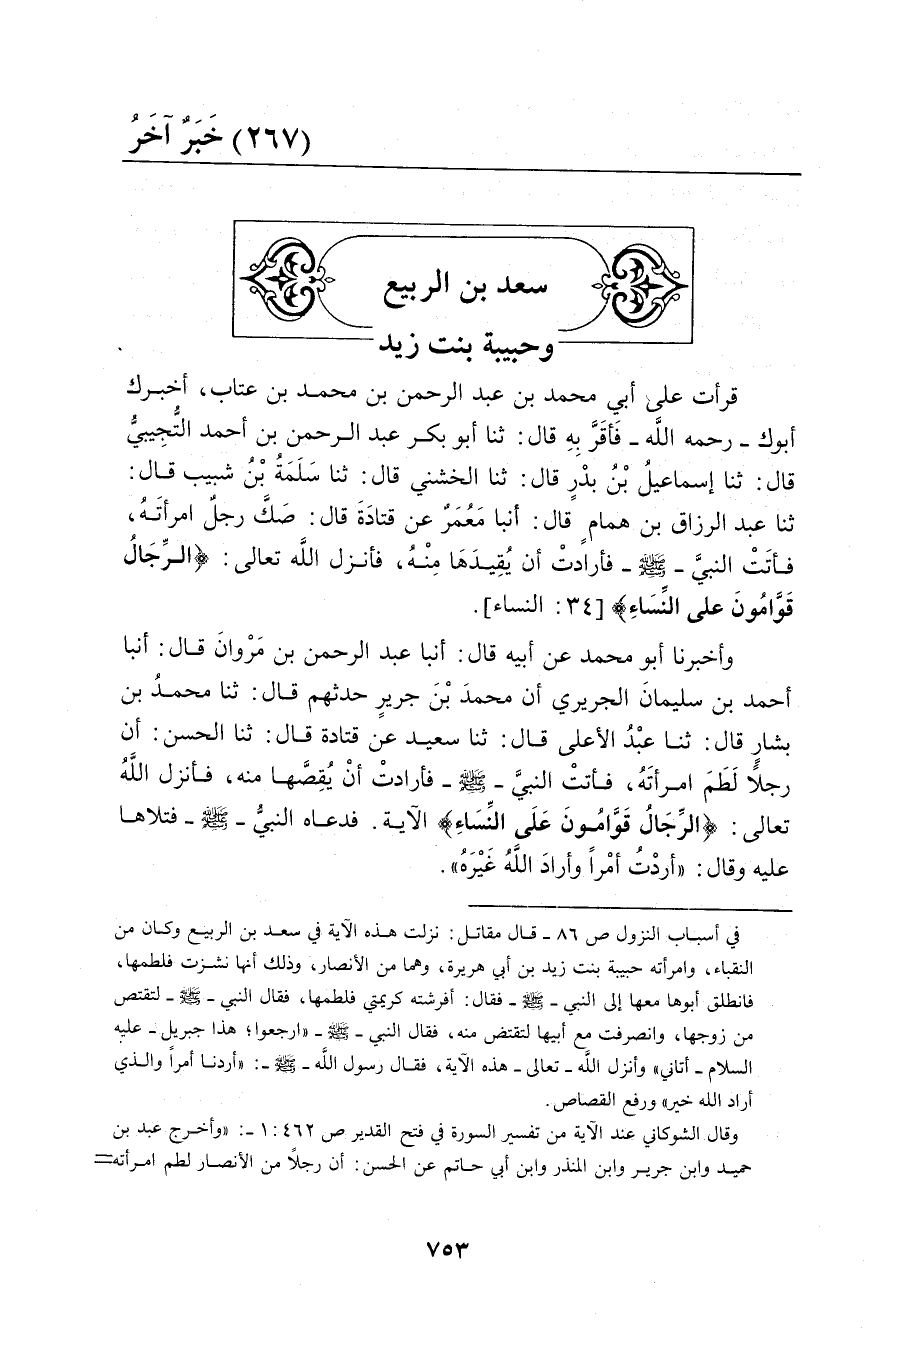 (٢٦٧) خَبَرٌ آخَرُ
سعد بن الربيع
وحبيبة بنت زيد
قرأت على أبي محمد بن عبد الرحمن بن محمد بن عتاب، أخبرك
أبوك ـ رحمه اللَّه ـ فَأَقَرَّ بِهِ قال: ثنا أبو بكر عبد الرحمن بن أحمد التُّجِيبيُّ
قال: ثنا إسماعيلُ بْنُ بدْرٍ قال: ثنا الخشني قال: ثنا سَلَمَةُ بْنُ شبيب قال:
ثنا عبد الرزاق بن همامٍ قال: أنبا مَعْمَرٌ عن قتادَةَ قال: صَكَّ رجلٌ امرأتَهُ،
فأتَتْ النبيَّ ـ ﷺ ـ فأرادتْ أن يُقِيدَهَا مِنْهُ، فأنزل اللَّه تعالى: ﴿الرِّجَالُ
قَوَّامُونَ على النِّسَاءِ﴾ [٣٤: النساء].
وأخبرنا أبو محمد عن أبيه قال: أنبا عبد الرحمن بن مَرْوانَ قال: أنبا
أحمد بن سليمانَ الجريري أن محمدَ بْنَ جريرٍ حدثهم قال: ثنا محمدُ بن
بشارٍ قال: ثنا عبْدُ الأعلى قال: ثنا سعيد عن قتادة قال: ثنا الحسن: أن
رجلًا لَطَمَ امرأتَهُ، فأتتْ النبيَّ ـ ﷺ ـ فأرادتْ أنْ يُقِصَّها منه، فأنزل اللَّهُ
تعالى: ﴿الرِّجَالُ قَوَّامُونَ عَلَى النِّسَاءِ﴾ الآية. فدعاه النبيُّ ـ ﷺ ـ فتلاها
عليه وقال: «أردْتُ أمْراً وأرادَ اللَّهُ غَيْرَهُ».
في أسباب النزول ص ٨٦ ـ قال مقاتل: نزلت هذه الآية في سعد بن الربيع وكان من
النقباء، وامرأته حبيبة بنت زيد بن أبي هريرة، وهما من الأنصار، وذلك أنها نشزت فلطمها،
فانطلق أبوها معها إلى النبي ـ ﷺ ـ فقال: أفرشته كريمتي فلطمها، فقال النبي ـ ﷺ ـ لتقتص
من زوجها، وانصرفت مع أبيها لتقتض منه، فقال النبي ـ ﷺ ـ «ارجعوا؛ هذا جبريل ـ عليه
السلام ـ أتاني» وأنزل اللَّه ـ تعالى ـ هذه الآية، فقال رسول اللَّه ـ ﷺ ـ: «أردنا أمراً والذي
أراد الله خير» ورفع القصاص.
وقال الشوكاني عند الآية من تفسير السورة في فتح القدير ص ٤٦٢: ١ ـ: «وأخرج عبد بن
حميد وابن جرير وابن المنذر وابن أبي حاتم عن الحسن: أن رجلًا من الأنصار لطم امرأته=
٧٥٣